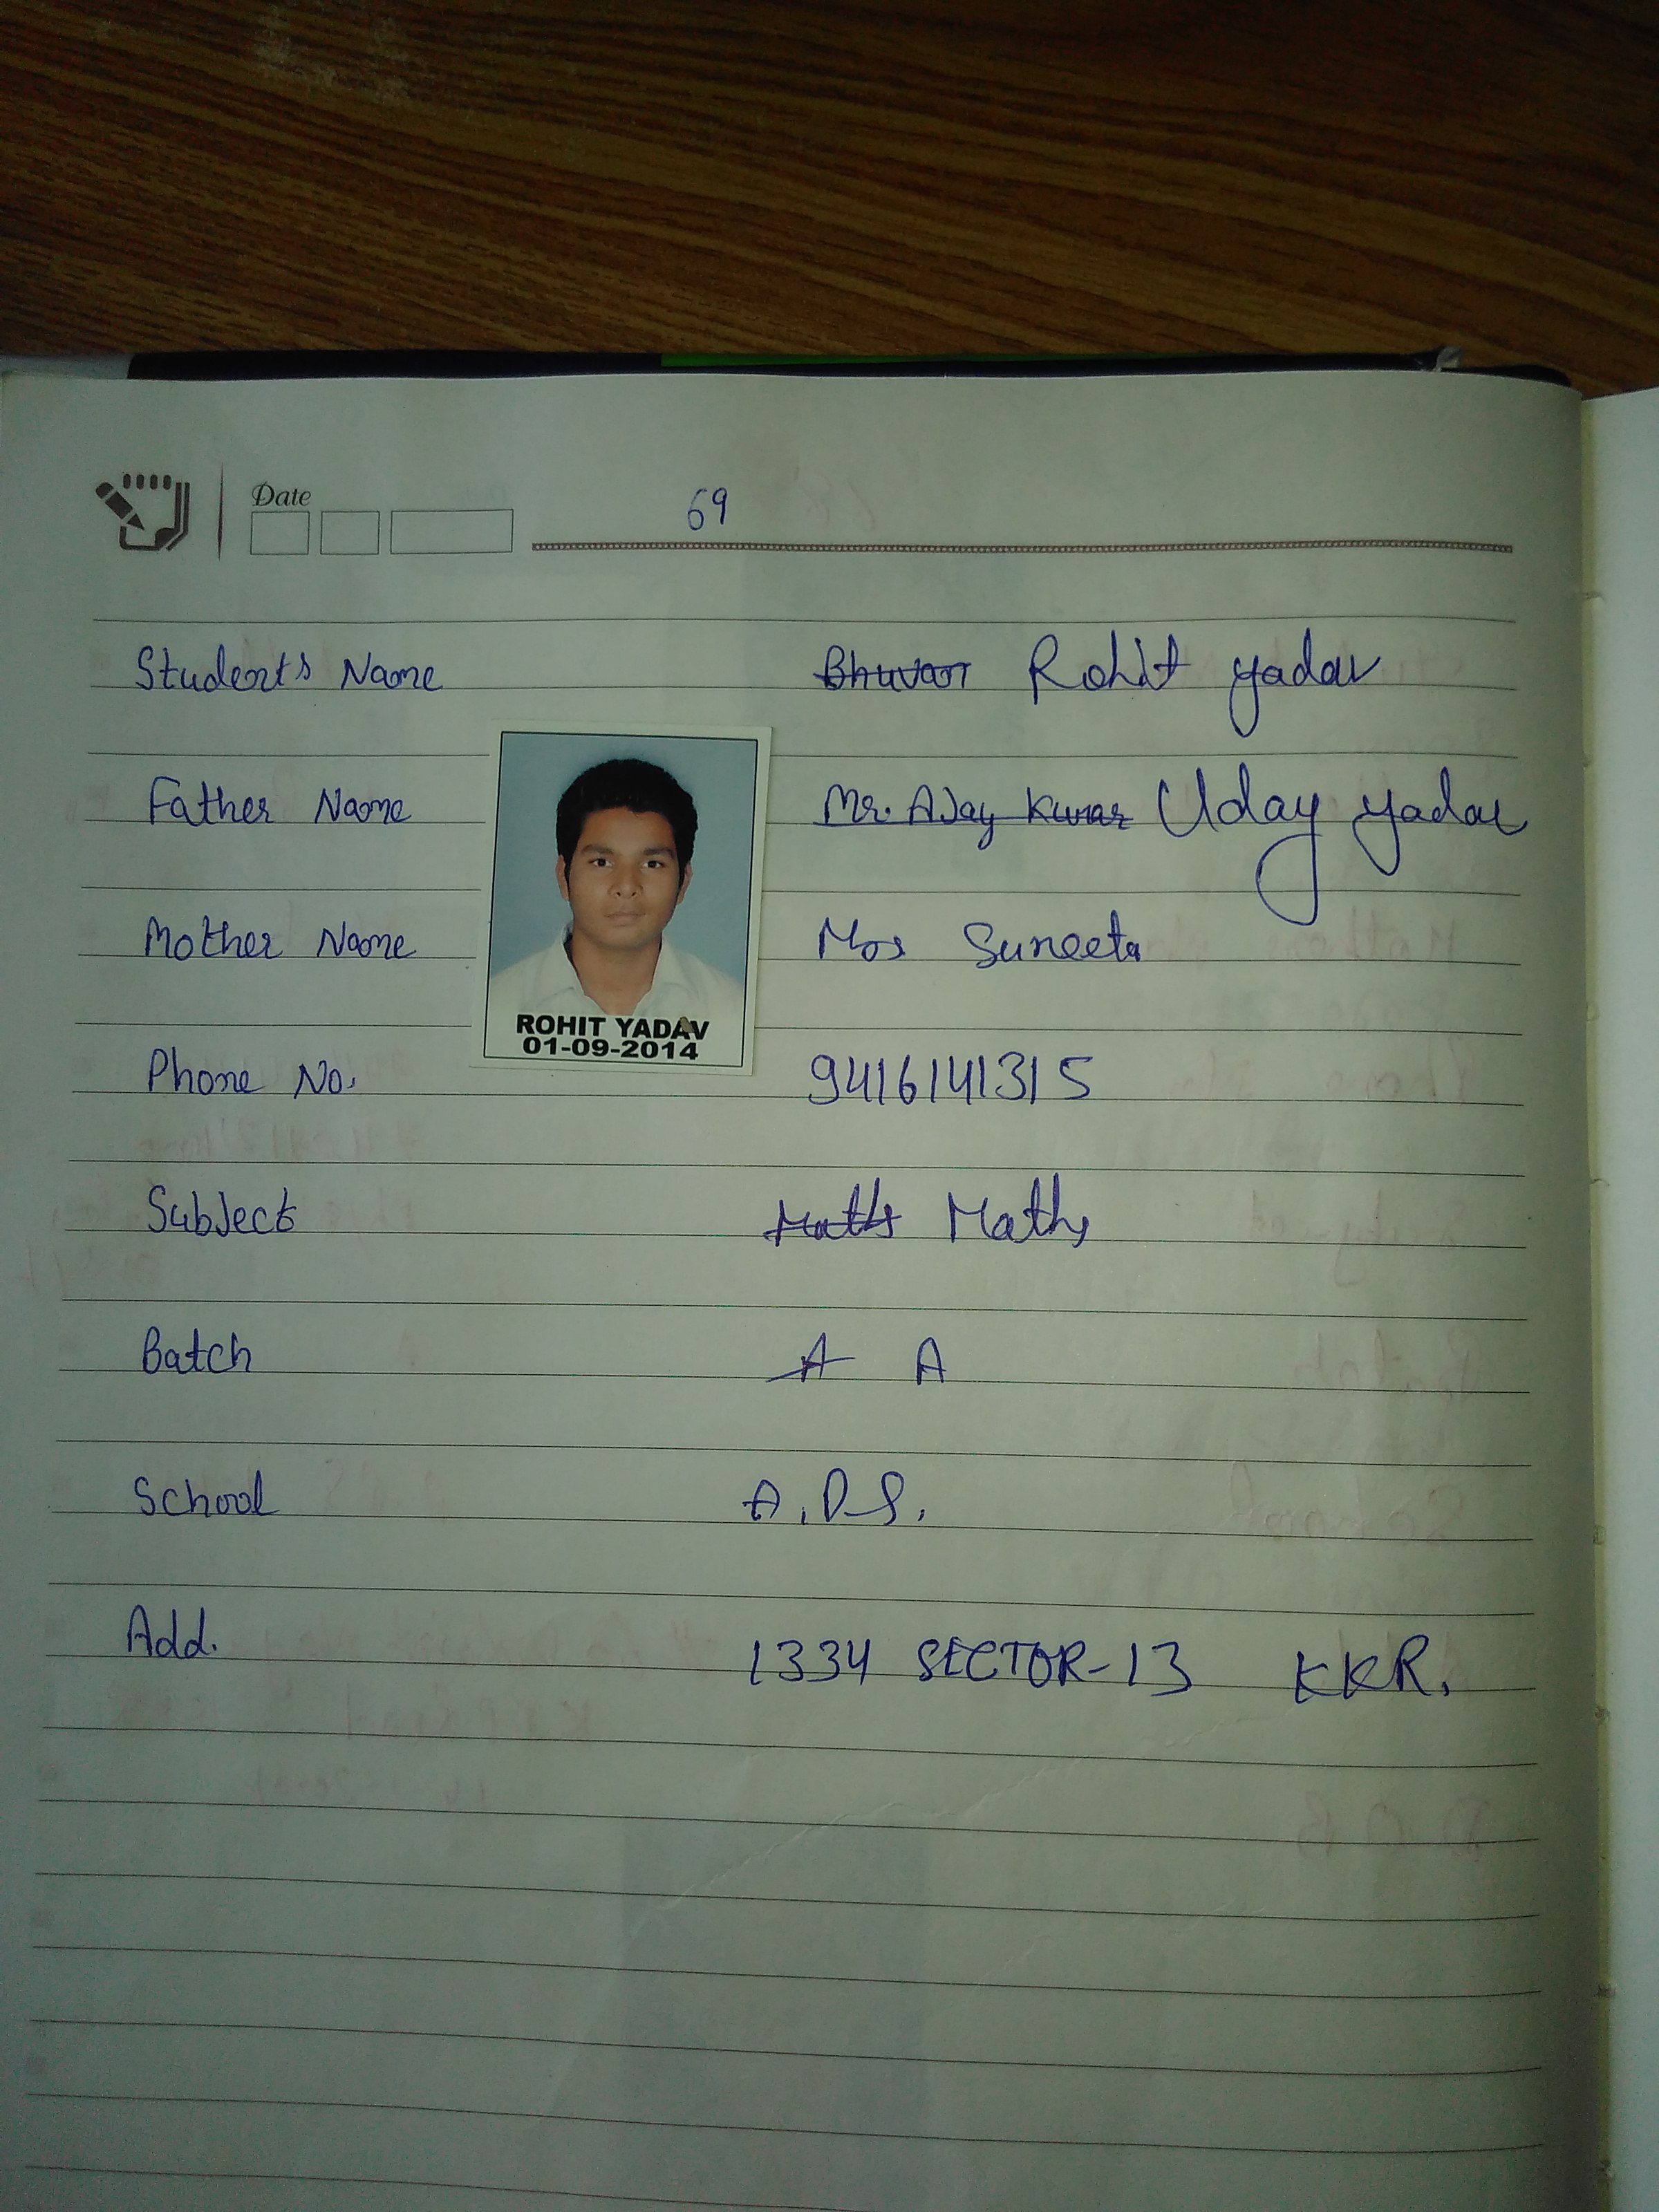 Date
69
Student's Name Bhuvan Rohit Yadav
Father Name Mr. AJay Kumar Uday Yadav
Mother Name Mrs Suneeta
ROHIT YADAV
01-09-2014
Phone No. 9416141315
Subject Maths Maths
Batch A A
School A.P.S.
Add. 1334 SECTOR-13 KKR.